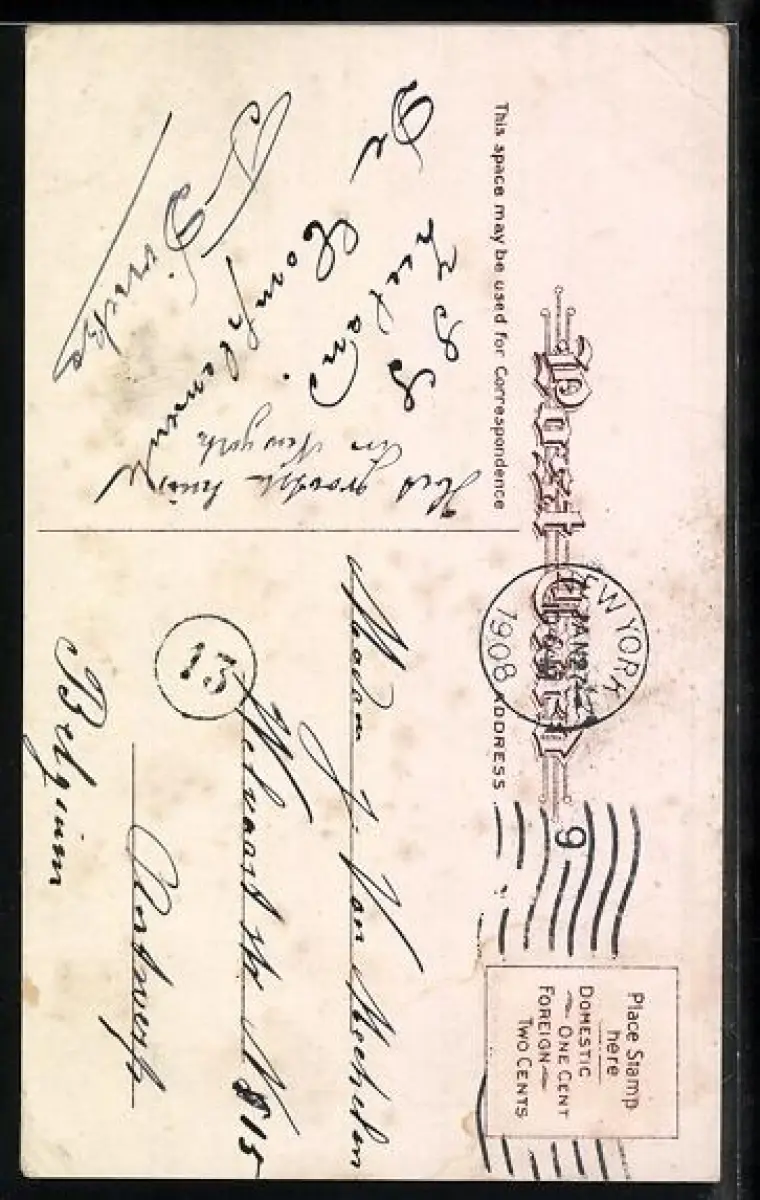 Post Card
This space may be used for Correspondence
ADDRESS
Place Stamp
here
DOMESTIC
ONE CENT
FOREIGN
TWO CENTS
NEW YORK
JAN 27
1908
9
De
Complements
Het grootste huis
in New york
Madam J. Van Mechelen
St N 815
Antwerp
Belgium
15